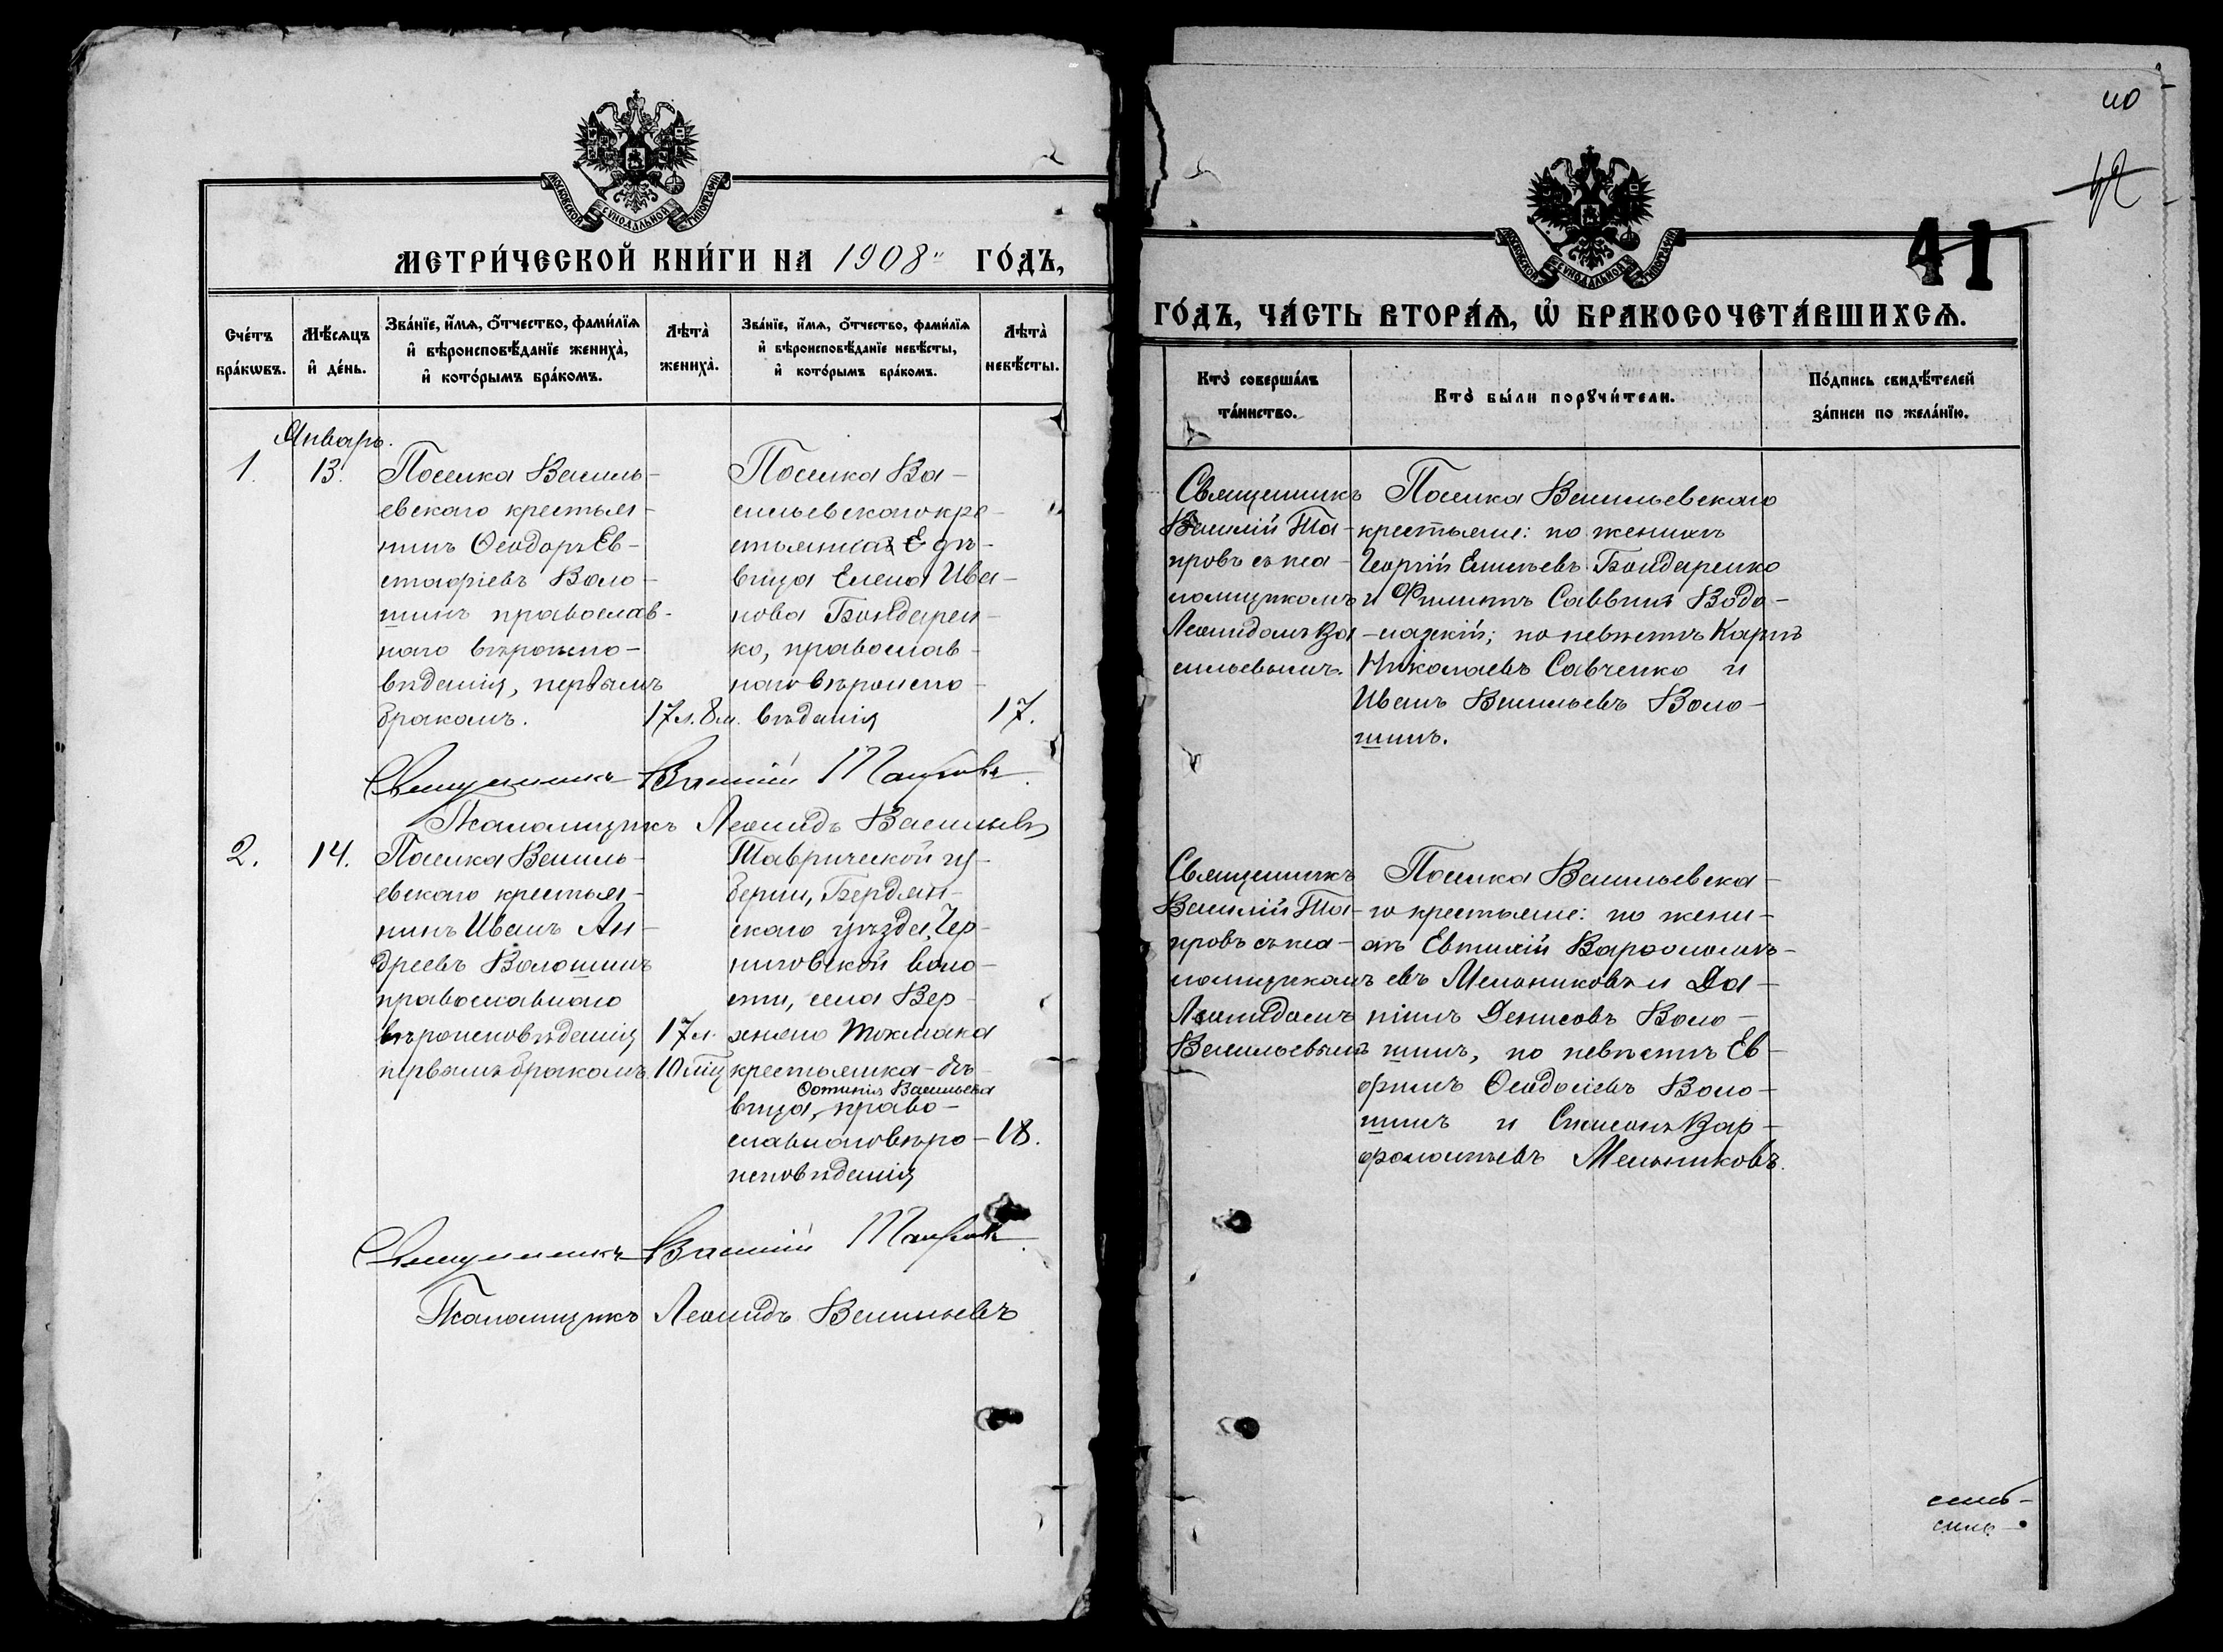 МОСКОВСКОЙ СѴНОДАЛЬНОЙ ТИПОГРАФІИ
МЕТРИ́ЧЕСКОЙ КНИ́ГИ НА 1908 ГО́ДЪ,
Сче́тъ бра́кѡвъ.
Мѣ́сяцъ и҆ де́нь.
Зва́нїе, и҆́мѧ, ѻ҆́тчество, фамѝлїѧ и҆ вѣроисповѣ́данїе женихà, и҆ кото́рымъ бра́комъ.
Лѣта̀ женихà.
Зва́нїе, и҆́мѧ, ѻ҆́тчество, фамѝлїѧ и҆ вѣроисповѣ́данїе невѣ́сты, и҆ кото́рымъ бра́комъ.
Лѣта̀ невѣ́сты.
Январь.
1.
13.
Поселка Василь-
евскаго крестья-
нинъ Ѳеодоръ Ев-
стафіевъ Воло-
шинъ православ-
наго вѣроиспо-
вѣданія, первымъ
бракомъ.
17 л. 8 м.
Поселка Ва-
сильевскаго кре-
стьянка дѣ-
вица Елена Ива-
нова Бондарен-
ко, православ-
наго вѣроиспо-
вѣданія
17.
Священникъ Василій Тапровъ.
Псаломщикъ Леонидъ Васильевъ
2.
14.
Поселка Василь-
евскаго крестья-
нинъ Иванъ Ан-
дреевъ Волошинъ
православнаго
вѣроисповѣданія
первымъ бракомъ
17 л.
10 м.
Таврической гу-
берніи, Бердян-
скаго уѣзда, Чер-
ниговской воло-
сти, села Вер-
хняго Токмака
крестьянка-дѣ-
Ѳотинія Васильева
вица, право-
славнаго вѣро-
исповѣданія
18.
Священникъ Василій Тапровъ.
Псаломщикъ Леонидъ Васильевъ
40
41
МОСКОВСКОЙ СѴНОДАЛЬНОЙ ТИПОГРАФІИ
ГО́ДЪ, ЧА́СТЬ ВТОРА́Ѧ, Ѡ҆ БРАКОСОЧЕТА́ВШИХСѦ.
Кто̀ соверша́лъ та́инство.
Кто̀ бы́ли порꙋчи́тели.
По́дпись свидѣ́телей за́писи по жела́нїю.
Священникъ
Василій Та-
провъ съ пса-
ломщикомъ
Леонидомъ Ва-
сильевымъ.
Поселка Васильевскаго
крестьяне: по женихѣ
Георгій Елисѣевъ Бондаренко
и Филиппъ Саввинъ Водо-
лазскій; по невѣстѣ Карпъ
Николаевъ Савченко и
Иванъ Васильевъ Воло-
шинъ.
Священникъ
Василій Та-
провъ съ пса-
ломщикомъ
Леонидомъ
Васильевымъ
Поселка Васильевска-
го крестьяне: по жени-
хѣ Евтихій Варѳоломѣ-
евъ Мельниковъ и Да-
ніилъ Денисовъ Воло-
шинъ, по невѣстѣ Ев-
фимъ Ѳеодосіевъ Воло-
шинъ и Симеонъ Вар-
фоломѣевъ Мельниковъ.